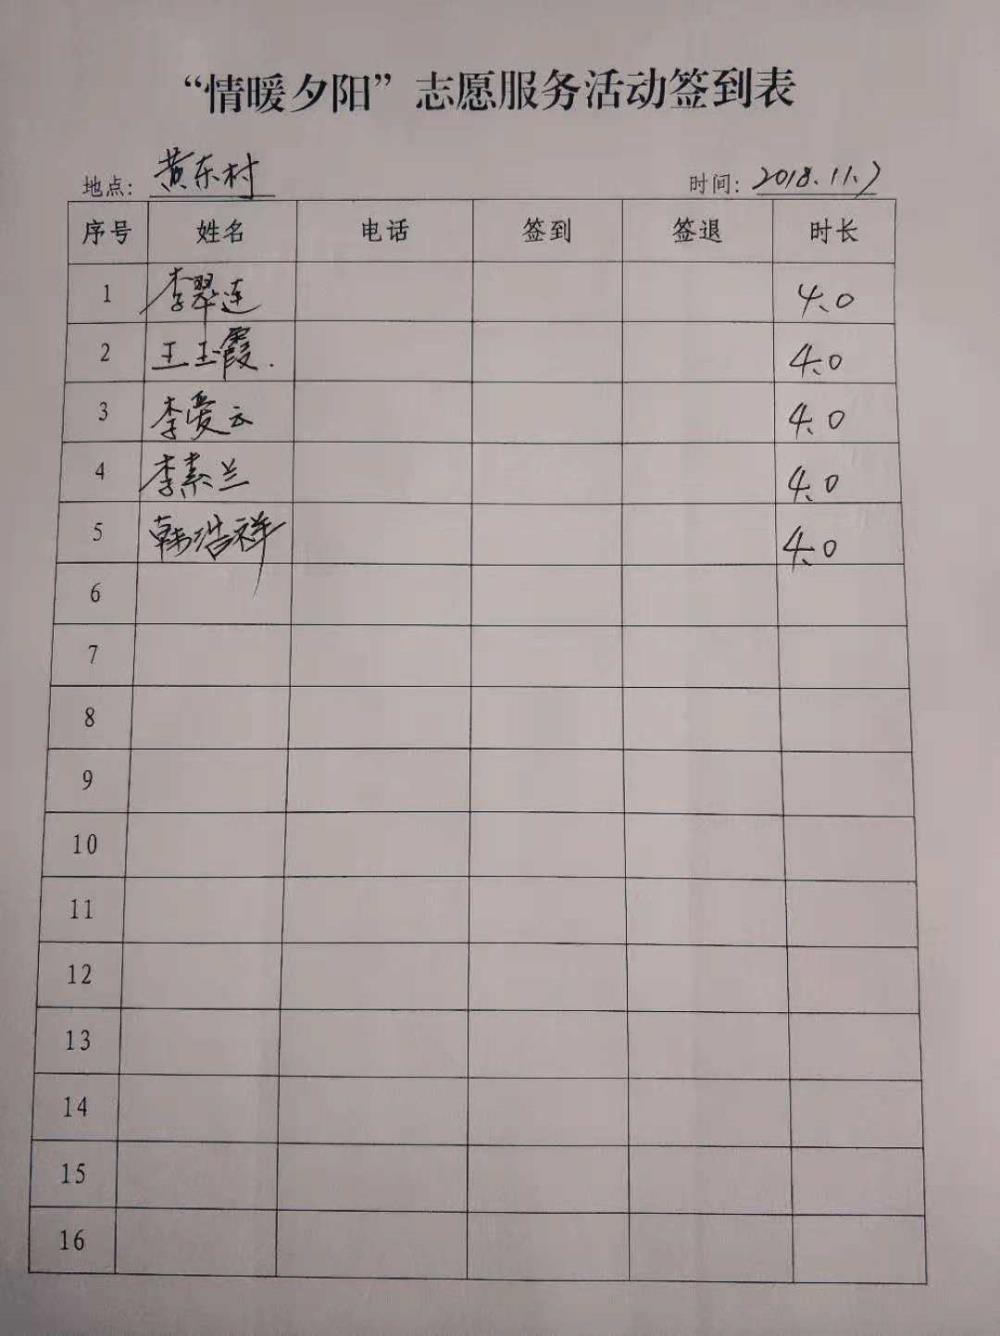 “情暖夕阳”志愿服务活动签到表
地点: 黄东村 时间: 2018.11.7
序号 姓名 电话 签到 签退 时长
1 李翠连 4.0
2 王玉霞. 4.0
3 李爱云 4.0
4 李素兰 4.0
5 韩浩祥 4.0
6
7
8
9
10
11
12
13
14
15
16